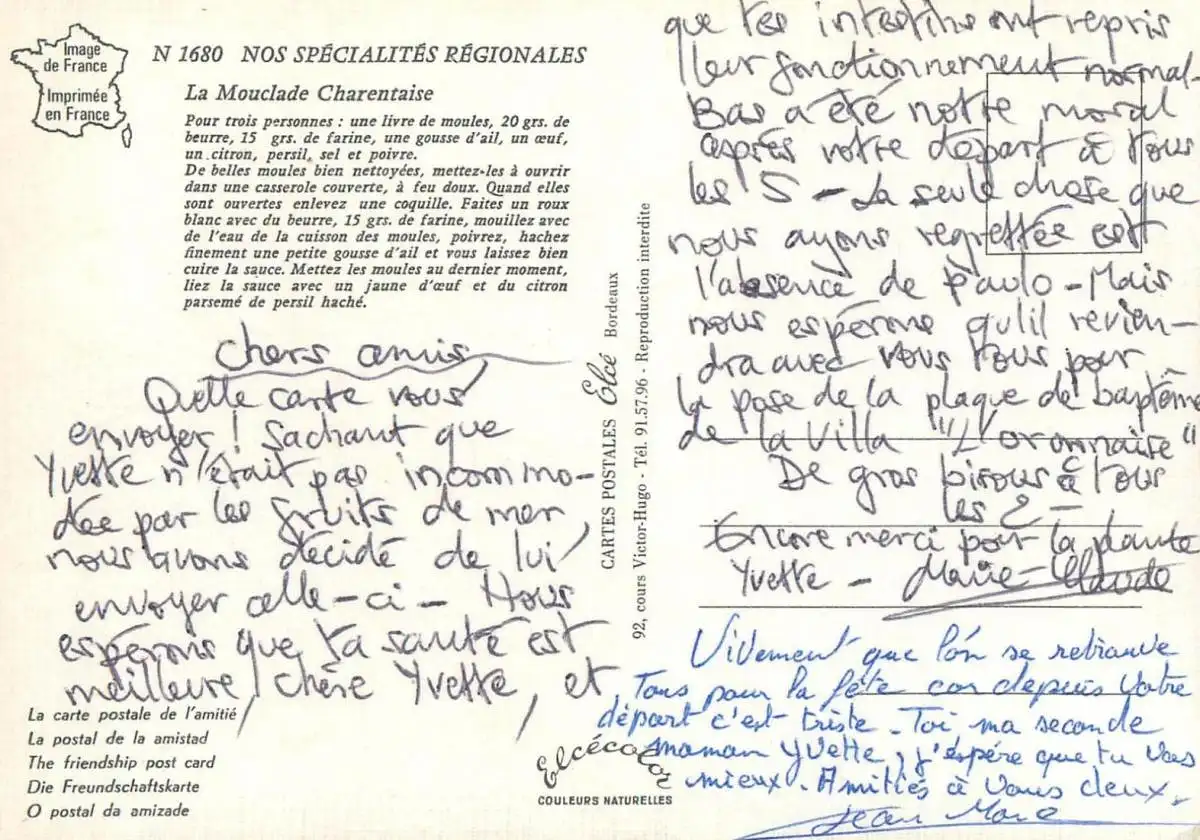 Image
de France
Imprimée
en France
N 1680 NOS SPÉCIALITÉS RÉGIONALES
La Mouclade Charentaise
Pour trois personnes : une livre de moules, 20 grs. de
beurre, 15 grs. de farine, une gousse d'ail, un œuf,
un citron, persil, sel et poivre.
De belles moules bien nettoyées, mettez-les à ouvrir
dans une casserole couverte, à feu doux. Quand elles
sont ouvertes enlevez une coquille. Faites un roux
blanc avec du beurre, 15 grs. de farine, mouillez avec
de l'eau de la cuisson des moules, poivrez, hachez
finement une petite gousse d'ail et vous laissez bien
cuire la sauce. Mettez les moules au dernier moment,
liez la sauce avec un jaune d'œuf et du citron
parsemé de persil haché.
chers amis,
Quelle carte vous
envoyer ! Sachant que
Yvette n'était pas incommo-
dée par les fruits de mer,
nous avons décidé de lui
envoyer celle-ci - Nous
espérons que ta santé est
meilleure, chère Yvette, et
La carte postale de l'amitié
La postal de la amistad
The friendship post card
Die Freundschaftskarte
O postal da amizade
CARTES POSTALES Elcé Bordeaux
92, cours Victor-Hugo - Tél. 91.57.96 - Reproduction interdite
Elcécolor
COULEURS NATURELLES
que tes intestins ont repris
leur fonctionnement normal-
Bas a été notre moral
après votre départ à tous
les 5 - La seule chose que
nous ayons regrettée est
l'absence de Paulo - Mais
nous espérons qu'il revien-
dra avec vous tous pour
la pose de la plaque de baptême
de la villa "L'oronnaire"
De gros bisous à tous
les 2 -
Encore merci pour la plante
Yvette - Marie-Claude
Vivement que l'on se retrouve
Tous pour la fête car depuis votre
départ c'est triste. Toi ma seconde
maman Yvette, j'espère que tu vas
mieux. Amitiés à vous deux.
Jean Marc